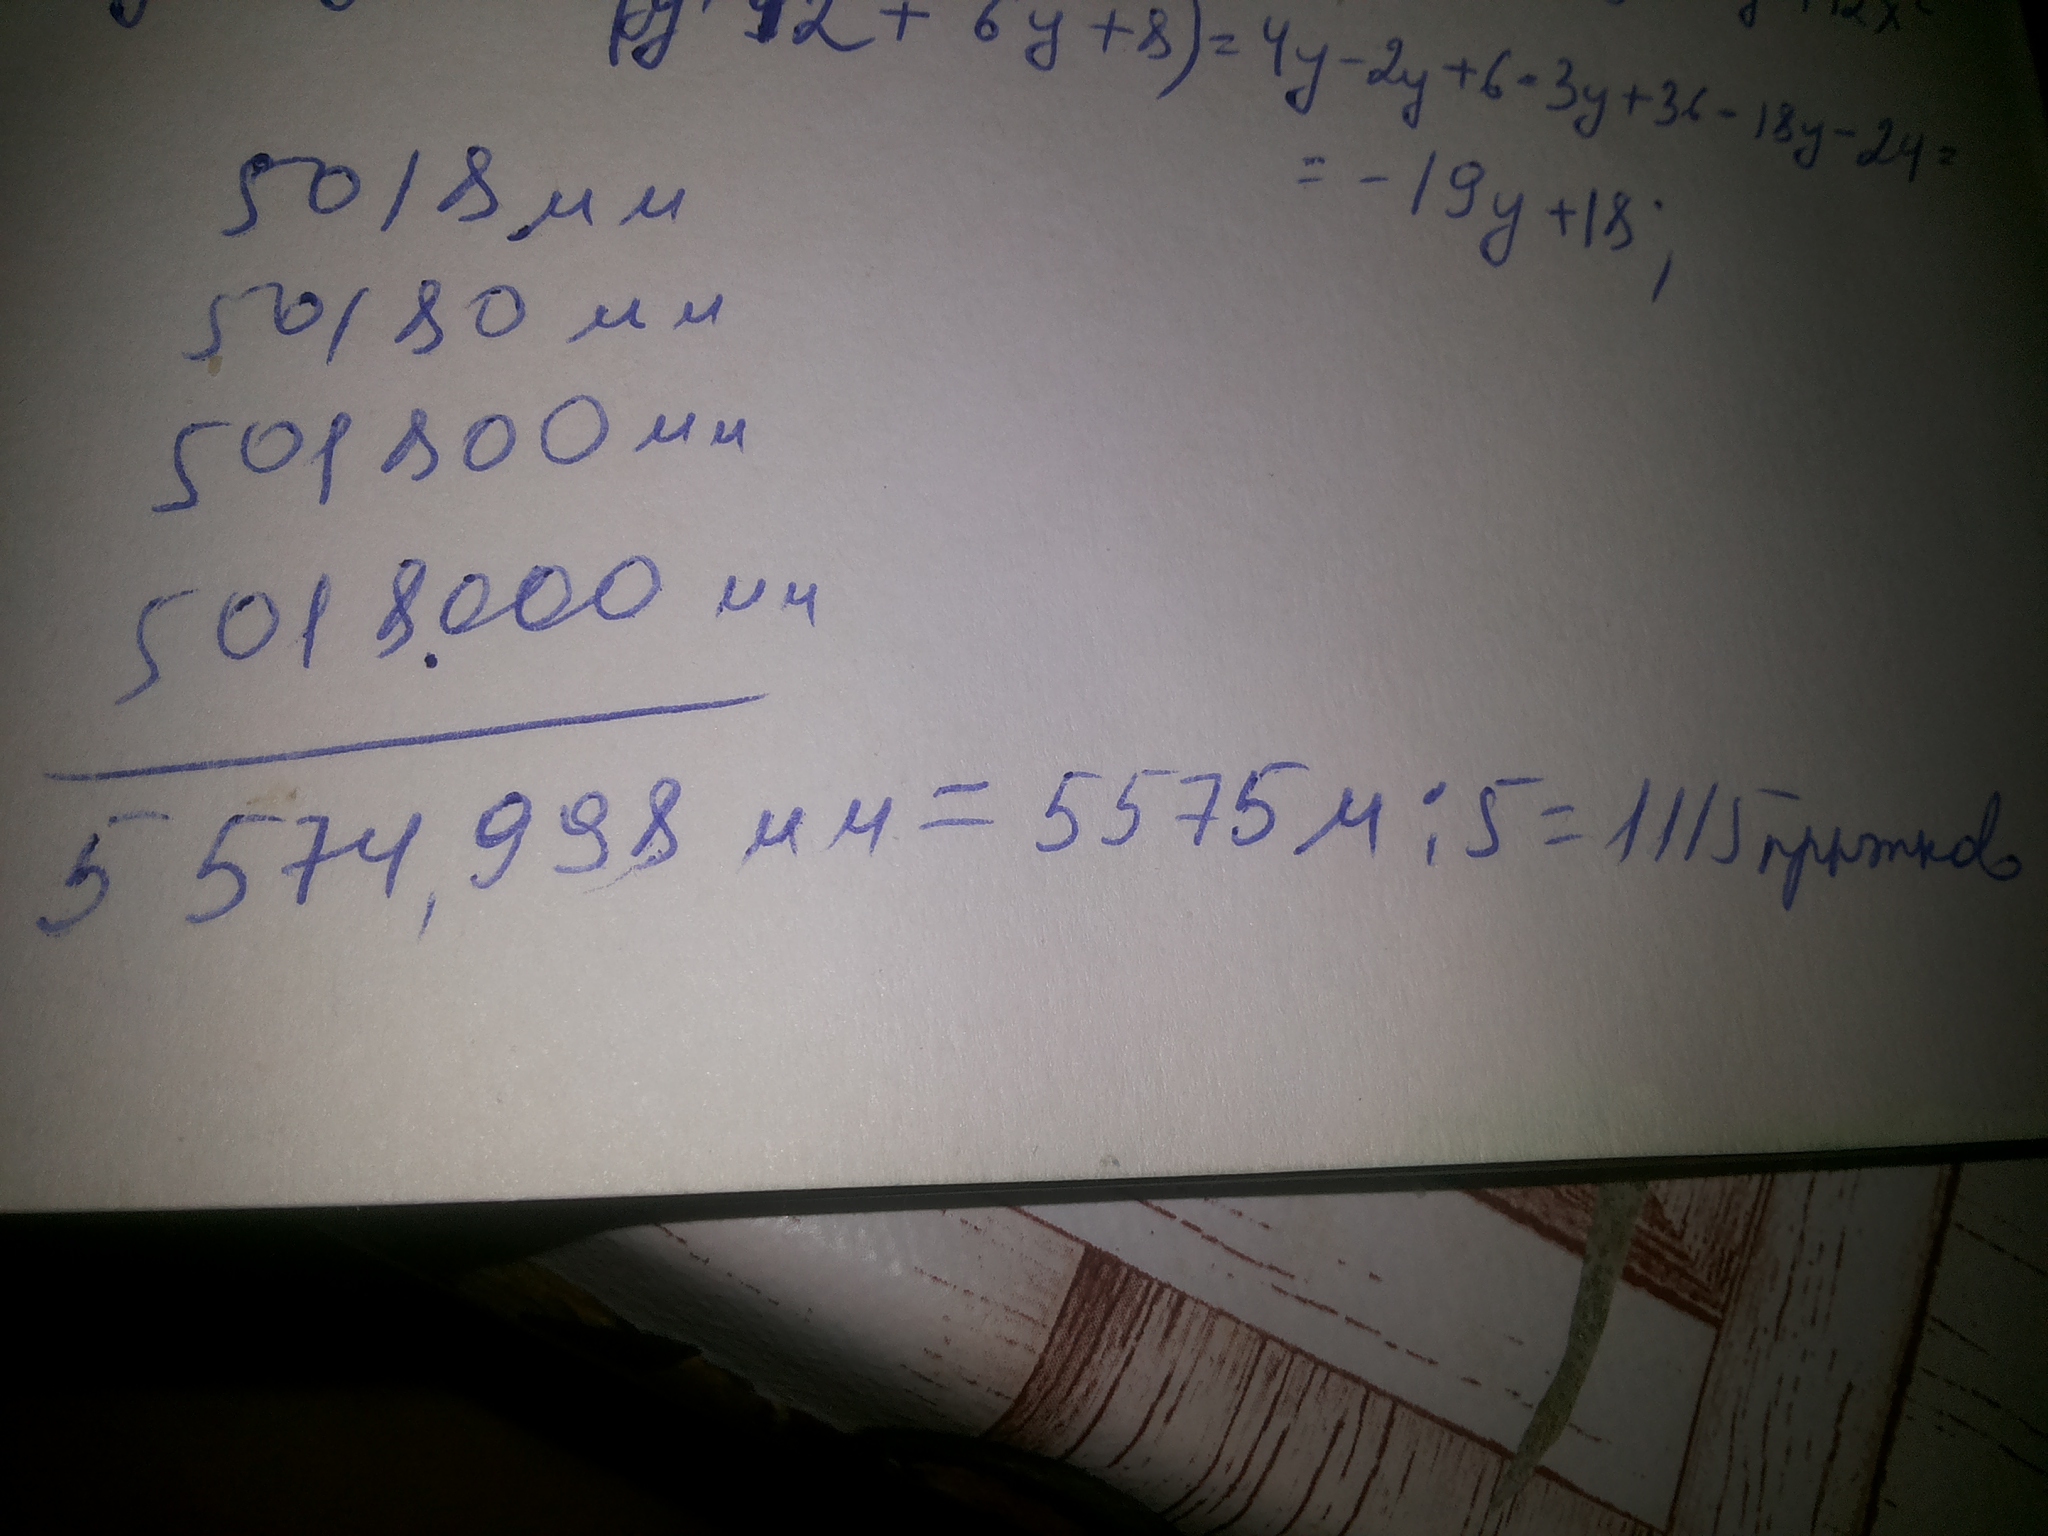 12 + 6y + 8) = 4y - 2y + 6 - 3y + 36 - 18y - 24 =
= - 19y + 18;
5018 мм
50180 мм
501800 мм
5018000 мм
5 574,998 мм = 5575 м : 5 = 1115 прыжков